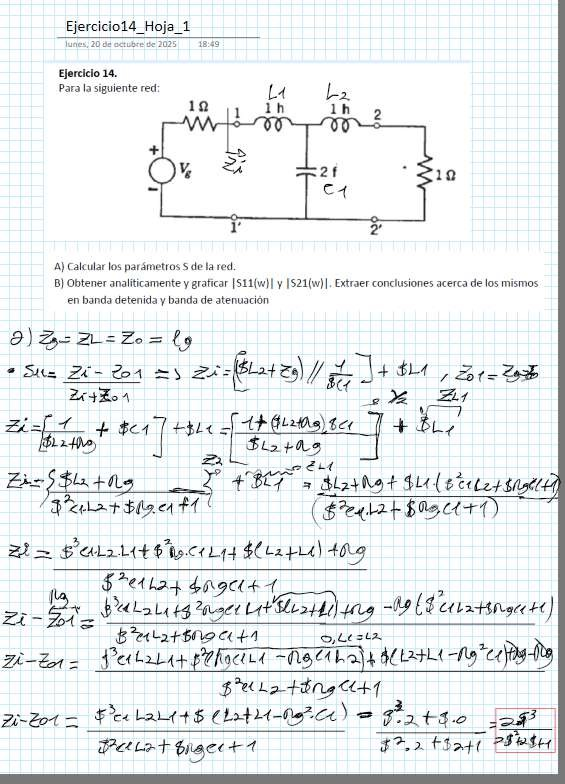 Ejercicio14_Hoja_1
lunes, 20 de octubre de 2025 18:49
Ejercicio 14.
Para la siguiente red:
L1 L2
1 Ω 1 1 h 1 h 2
+ Vg - Zi 2 f C1 1 Ω
1' 2'
A) Calcular los parámetros S de la red.
B) Obtener analíticamente y graficar |S11(w)| y |S21(w)|. Extraer conclusiones acerca de los mismos
en banda detenida y banda de atenuación
a) Zg = ZL = Z0 = Rg
• S11 = Zi - Z01 / Zi + Z01 => Zi = [($L2 + Zg) // 1/$C1] + $L1 , Z01 = Zg
Zi = [1/($L2+Rg) + $C1] + $L1 = [1+($L2+Rg).$C1 / $L2+Rg] + $L1
Zi = { $L2+Rg / $²C1L2+$Rg.C1+1 } + $L1 = $L2+Rg+$L1($²C1L2+$RgC1+1) / ($²C1.L2+$RgC1+1)
Zi = $³C1.L2.L1+$²Rg.C1L1+$(L2+L1)+Rg / $²C1L2+$RgC1+1
Zi - Z01 = $³C1L2L1+$²RgC1L1+$(L2+L1)+Rg-Rg($²C1L2+$RgC1+1) / $²C1L2+$RgC1+1
0, L1=L2
Zi-Z01 = $³C1L2L1+$²(RgC1L1-RgC1L2)+$(L2+L1-Rg²C1)+Rg-Rg / $²C1L2+$RgC1+1
Zi-Z01 = $³C1L2L1+$(L2+L1-Rg².C1) / $²C1L2+$RgC1+1 = $³.2+$.0 / $².2+$2+1 = 2$³ / 2$²+2$+1